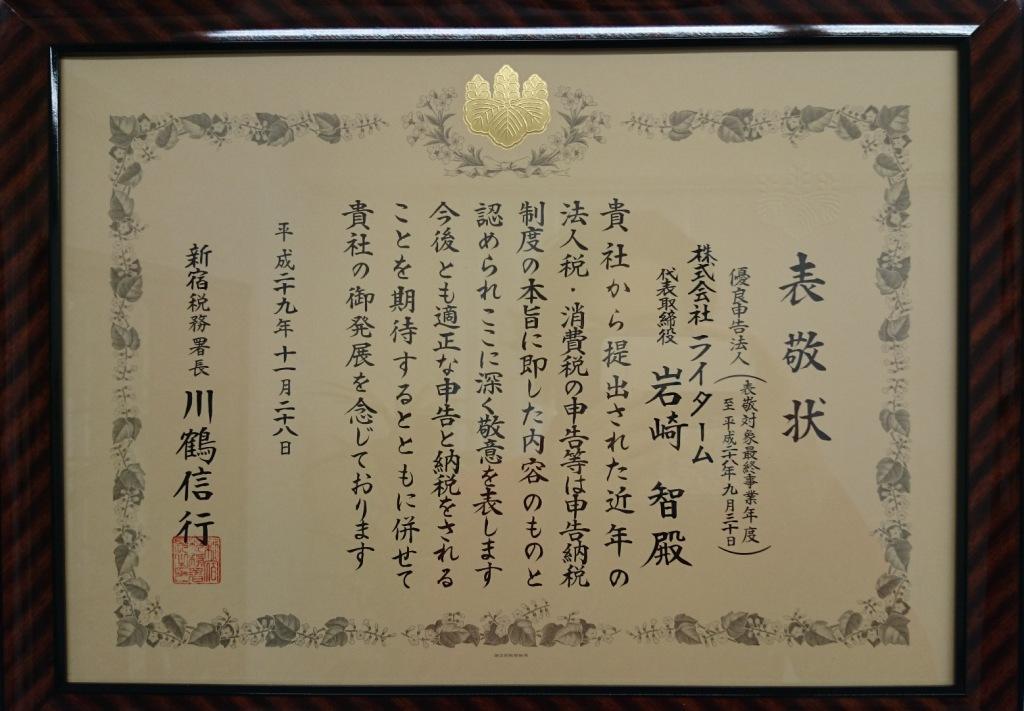 表敬状
優良申告法人(表敬対象最終事業年度
至 平成二十八年九月三十日)
株式会社 ライターム
代表取締役 岩崎 智 殿
貴社から提出された近年の
法人税・消費税の申告等は申告納税
制度の本旨に即した内容のものと
認められここに深く敬意を表します
今後とも適正な申告と納税をされる
ことを期待するとともに併せて
貴社の御発展を念じております
平成二十九年十一月二十八日
新宿税務署長 川鶴信行